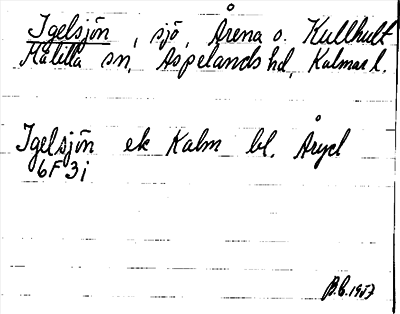 Igelsjön, sjö, Årena o. Kullhult
Målilla sn, Aspelands hd, Kalmar l.
Igelsjön ek Kalm bl. Åryd
6F3i
B.C. 1957